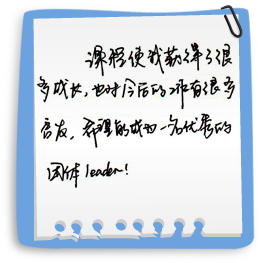 课程使我勤得了很
多成长，也对今后的工作有很多
启发，希望能成为一名优秀的
团体leader！